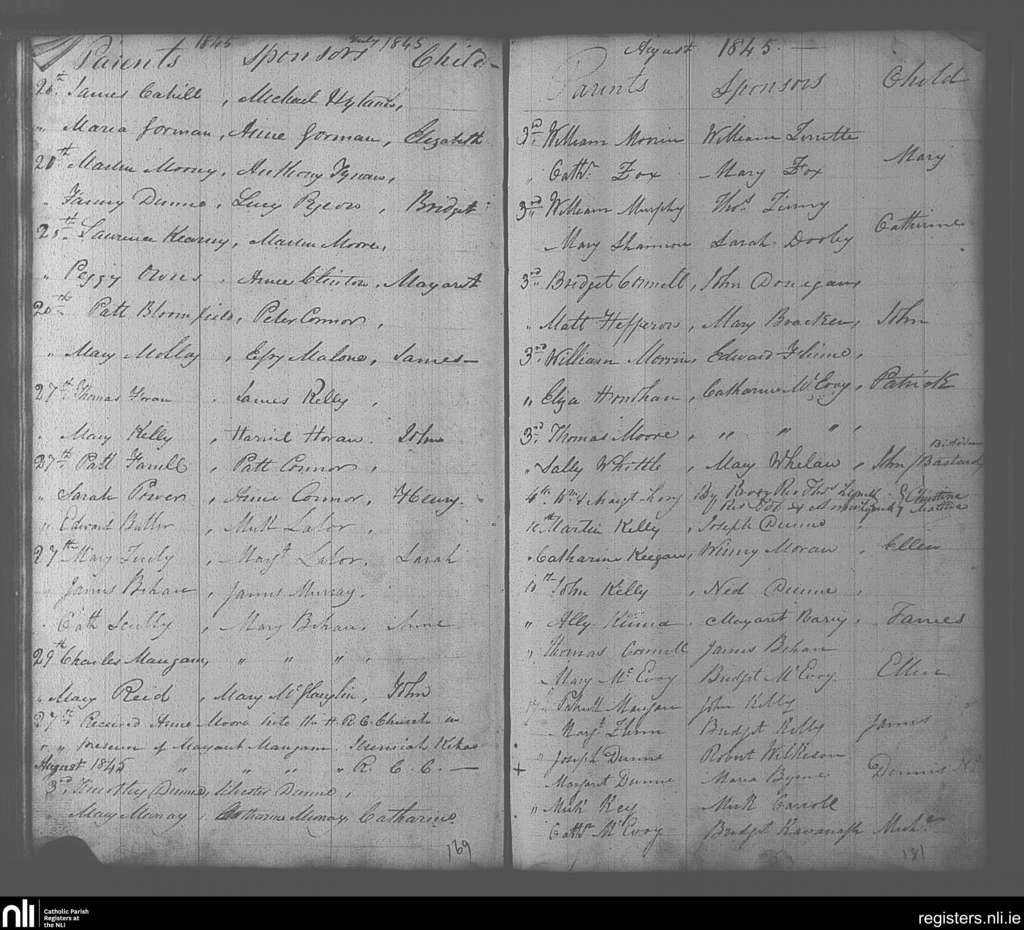 1845 July 1845
Parents Sponsors Child
20th James Cahill, Michael Hyland,
" Maria Gorman, Anne Gorman, Elizabeth
20th Martin Moony, Anthony
" Fanny Dunne, Lucy Bridget
25th Laurence Kearny, Martin Moore,
" Peggy Owns, Anne Clinton, Margaret
20th Patt Bloomfield, Peter Connor,
" Mary Molloy, Espy Malone, James
27th Thomas Horan, James Kelly,
" Mary Kelly, Harriet Horan. John
27th Patt Farrell, Patt Connor,
" Sarah Power, Anne Connor, Henry.
" Edward Butler, Matt Lalor,
27th Mary Margt Lalor. Sarah
" James Bihan, James Murray.
" Cath Scully, Mary Bihan, Anne
29th Charles Mangan, " " "
" Mary Reid, Mary McGlaughlin, John
27th Received Anne Moore into the H. R. C. Church in
" " presence of Margaret Mangan. Jeremiah
August 1845 " " " " R. C. C.
3rd Timothy Dunne, Dunne,
" Mary Murray, Catharine Murray, Catharine
169
August 1845.
Parents Sponsors Child
3rd William Morrin William
" Cathn Fox Mary Fox Mary
3rd William Murphy Thos
Mary Shannon Sarah Dooly Catherine
3rd Bridget Connell, John Donegan
" Matt Hepperon, Mary Bracken, John
3rd William Morrin, Edward
" Eliza Catharine McEvoy, Patrick
3rd Thomas Moore, " " "
" Sally Whittle, Mary Whelan, John / Bastard
4th Wm & Margt By Revd Thos
10th Martin Kelly, Joseph Dunne
" Catharine Keegan, Winny Moran, Ellen
10th John Kelly, Ned Dunne,
" Ally Margaret Barry, James
" Thomas Connell James Bihan
Mary McEvoy Bridget McEvoy Ellen
Mangan John Kelly
Margt Bridget Kelly James
+ Joseph Dunne Robert Wilkison
Margaret Dunne Maria Byrne Dennis
" Mick Key Mick Carroll
Cathn McEvoy Bridget Kavanagh Michl
181
nli
Catholic Parish
Registers at
the NLI
registers.nli.ie